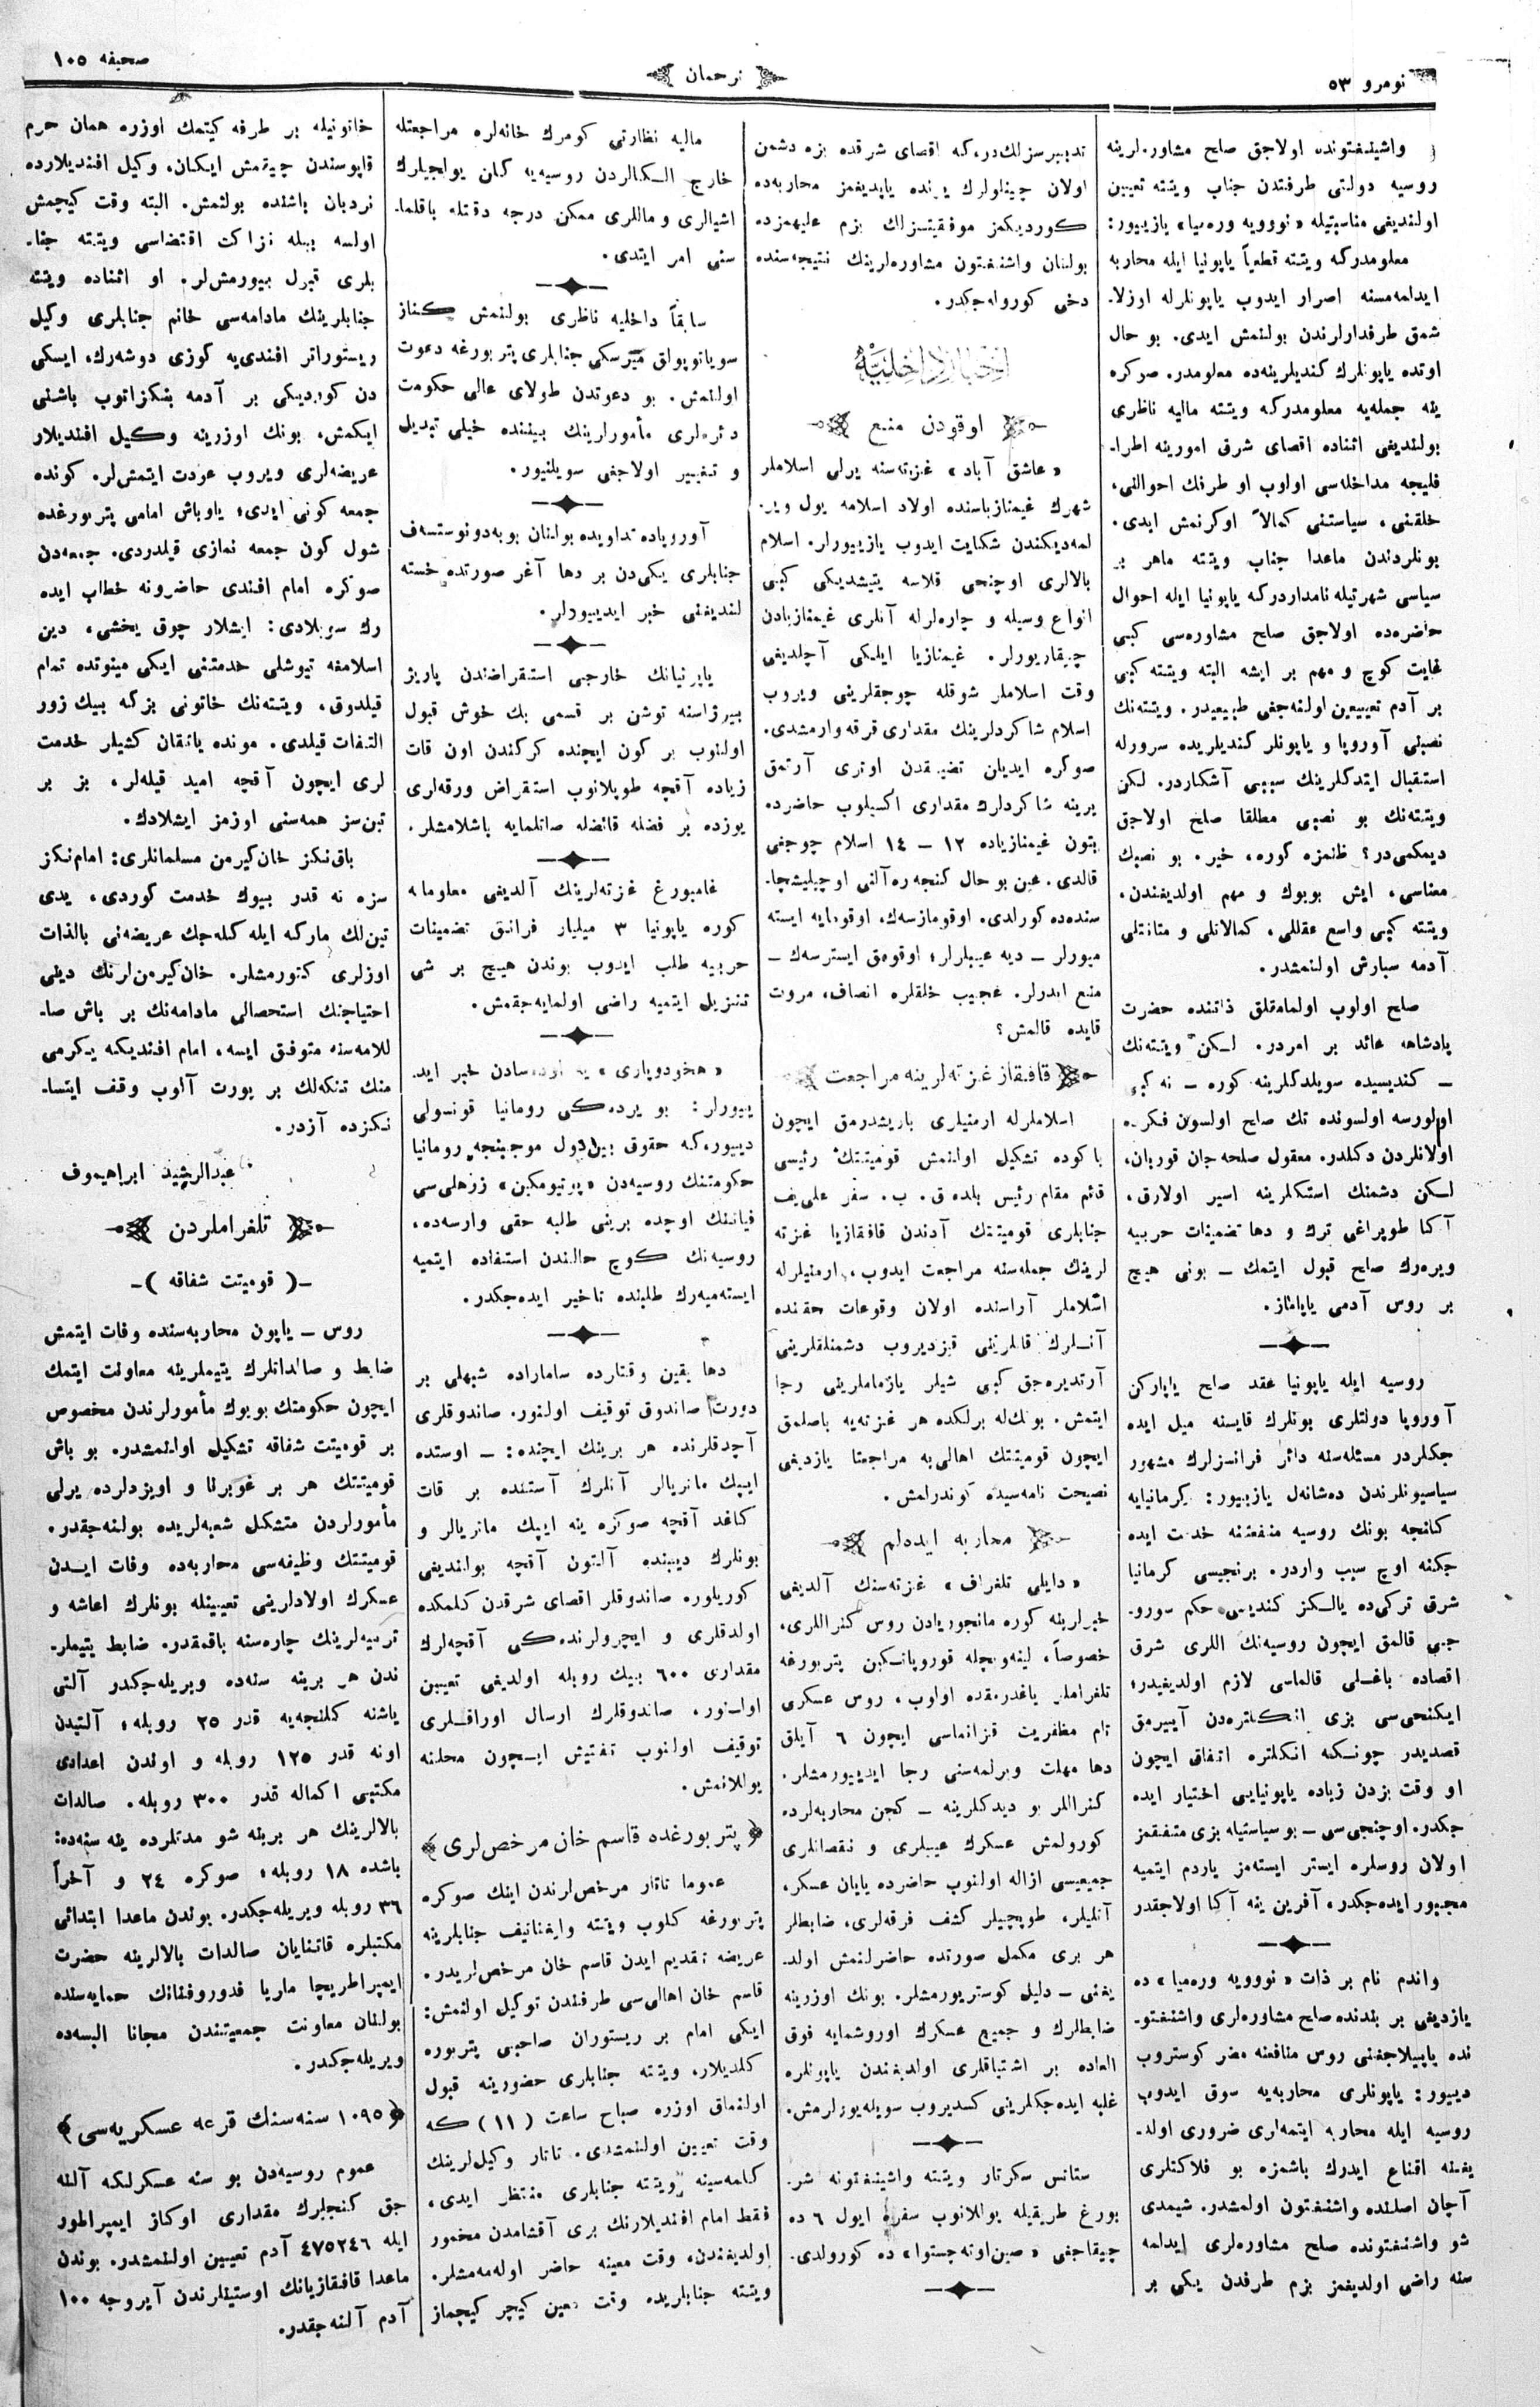 نومرو ٥٣
ترجمان
صحیفه ١٠٥
واشینغتونده اولاجق صلح مشاوره‌لرینه
روسیه دولتی طرفندن جناب ویتته تعیین
اولندیغی مناسبتیله «نوویه وره‌میا» یازییور:
معلومدرکه ویتته قطعیاً یاپونیا ایله محاربه
ایدلمه‌مسنه اصرار ایدوب یاپونلرله اوزلا-
شمق طرفدارلرندن بولنمش ایدی. بو حال
اوتده یاپونلرك كندیلرینه‌ده معلومدر. صوكره
ینه جمله‌یه معلومدركه ویتته مالیه ناظری
بولندیغی اثناده اقصای شرق امورینه اطرا-
فلیجه مداخله‌سی اولوب او طرفك احوالنی،
خلقنی، سیاستنی كمالاً اوكرنمش ایدی.
بونلردندن ماعدا جناب ویتته ماهر بر
سیاسی شهرتیله نامداردركه یاپونیا ایله احوال
حاضره‌ده اولاجق صلح مشاوره‌سی كبی
غایت كوچ و مهم بر ایشه البته ویتته كبی
بر آدم تعییین اولنه‌جغی طبیعیدر. ویتته‌نك
نصبنی آوروپا و یاپونلر كندیلریده سرورله
استقبال ایتدكلرینك سببی آشكاردر. لكن
ویتته‌نك بو نصبی مطلقا صلح اولاجق
دیمكمی‌در؟ ظنمزه كوره، خیر. بو نصبك
معناسی، ایش بویوك و مهم اولدیغندن،
ویتته كبی واسع عقللی، كمالاتلی و متانتلی
آدمه سپارش اولنمشدر.
صلح اولوب اولمامه‌قلق ذاتنده حضرت
پادشاهه عائد بر امردر. لكن ویتته‌نك
– كندیسیده سویلدكلرینه كوره – نه كبی
اولورسه اولسونده تك صلح اولسون فكرنده
اولانلردن دكلدر. معقول صلحه جان قوربان،
لكن دشمنك استكلرینه اسیر اولارق،
آكا طوپراغی ترك و دها تضمینات حربیه
ویره‌رك صلح قبول ایتمك – بونی هیچ
بر روس آدمی یاپاماز.
روسیه ایله یاپونیا عقد صلح یاپاركن
آوروپا دولتلری بونلرك قایسنه میل ایده
جكلردر مسئله‌سنه دائر فرانسزلرك مشهور
سیاسیونلرندن ده‌شانه‌ل یازییور: كرمانیایه
كلنجه بونك روسیه منفعتنه خدمت ایده
جكنه اوچ سبب واردر. برنجیسی كرمانیا
شرق تركی‌ده یالكز كندیسی حكم سورو-
جی قالمق ایچون روسیه‌نك اللری شرق
اقصاده باغلی قالماسی لازم اولدیغیدر؛
ایكنجی‌سی بزی انكلتره‌دن آییرمق
قصدیدر چونكه انكلتره اتفاق ایچون
او وقت بزدن زیاده یاپونیایی اختیار ایده
جكدر. اوچنجی‌سی – بو سیاستیله بزی متفقمز
اولان روسلره ایستر ایسته‌مز یاردم ایتمیه
مجبور ایده‌جكدر، آفرین ینه آكا اولاجقدر
واندم نام بر ذات «نوویه وره‌میا» ده
یازدیغی بر بندنده صلح مشاوره‌لری واشنغتو-
نده یاپیلاجغنی روس منافعنه مضر كوستروب
دییور: یاپونلری محاربه‌یه سوق ایدوب
روسیه ایله محاربه ایتمه‌لری ضروری اولد-
یغنه اقناع ایدرك باشمزه بو فلاكتلری
آچان اصلنده واشنغتون اولمشدر. شیمدی
شو واشنغتونده صلح مشاوره‌لری ایدلمه
سنه راضی اولدیغمز بزم طرفدن یكی بر
تدبیرسزلك‌در، كه اقصای شرقده بزه دشمن
اولان چینلولرك یرنده یاپدیغمز محاربه‌ده
كوردیكمز موفقیتسزلك بزم علیهمزده
بولنان واشنغتون مشاوره‌لرینك نتیجه‌سنده
دخی كوروله‌جكدر.
اخبار داخلیه
اوقودن منع
«عاشق آباد» غزته‌سنه یرلی اسلاملر
شهرك غیمنازیاسنده اولاد اسلامه یول ویر-
لمه‌دیكندن شكایت ایدوب یازییورلر. اسلام
بالالری اوچنجی قلاسه یتیشدیكی كبی
انواع وسیله و چاره‌لرله آنلری غیمنازیادن
چیقاریورلر. غیمنازیا ایلیكی آچلدیغی
وقت اسلاملر شوقله چوجقلرینی ویروب
اسلام شاكردلرینك مقداری قرقه وارمشدی.
صوكره ایدیلن تضییقدن اوتری آرتمق
یرینه شاكردلرك مقداری اكسیلوب حاضرده
بتون غیمنازیاده ١٢ – ١٤ اسلام چوجغی
قالدی. عین بو حال كنجه‌ ره‌آلنی اوچیلیشچا-
سنده‌ده كورلدی. اوقومازسه‌ك، اوقومایه ایسته
میورلر – دیه عیبلرلر؛ اوقومق ایسترسه‌ك –
منع ایدرلر. عجیب خلقلره انصاف، مروت
قایده قالمش؟
قافقاز غزته‌لرینه مراجعت
اسلاملرله ارمنیلری باریشدرمق ایچون
باكوده تشكیل اولنمش قومیتتك رئیسی
قائم مقام رئیس بلده ق. ب. سفر علی‌یف
جنابلری قومیتتك آدندن قافقازیا غزته
لرینك جمله‌سنه مراجعت ایدوب، ارمنیلرله
اسلاملر آراسنده اولان وقوعات حقنده
آنلرك قانلرینی قیزدیروب دشمنلقلرینی
آرتدیره‌جق كبی شیلر یازماملرینی رجا
ایتمش. بونكله برلكده هر غزته‌یه باصلمق
ایچون قومیتتك اهالی‌یه مراجعتا یازدیغی
نصیحت نامه‌سیده كوندرلمش.
محاربه ایده‌لم
«دایلی تلغراف» غزته‌سنك آلدیغی
خبرلرینه كوره مانجوریادن روس كنراللری،
خصوصاً، لینه‌ویچله قوروپاتكین پتربورغه
تلغراملر یاغدرمقده اولوب، روس عسكری
تام مظفریت قزانماسی ایچون ٦ آیلق
دها مهلت ویرلمه‌سنی رجا ایدییورمشلر.
كنراللر بو دیدكلرینه – كچن محاربه‌لرده
كورولمش عسكرك عیبلری و نقصانلری
جمیعیسی ازاله اولنوب حاضرده یایان عسكر،
آتلیلر، طوپچیلر كشف فرقه‌لری، ضابطلر
هر بری مكمل صورتده حاضرلنمش اولد-
یغنی – دلیل كوستریورمشلر. بونك اوزرینه
ضابطلرك و جمیع عسكرك اوروشمایه فوق
العاده بر اشتیاقلری اولدیغندن یاپونلره
غلبه ایده‌جكلرینی كسدیروب سویله‌یورلرمش.
ستاتس سكرتار ویتته واشینغتونه شر-
بورغ طریقیله یوللانوب سفره ایول ٦ ده
چیقاجغی «صین اوته‌چستوا» ده كورولدی.
مالیه نظارتی كومرك خانه‌لره مراجعتله
خارج السكالردن روسیه‌یه كلن یولجیلرك
اشیالری و ماللری ممكن درجه دقتله باقلما-
سنی امر ایتدی.
سابقاً داخلیه ناظری بولنمش كناز
سویاتوپولق میرسكی جنابلری پتربورغه دعوت
اولنمش. بو دعوتدن طولای عالی حكومت
دائره‌لری مأمورلرینك بیننده خیلی تبدیل
و تغییر اولاجغی سویلنیور.
آوروپاده تداویده بولنان پوبه‌دونوستسه‌ف
جنابلری یكی‌دن بر دها آغر صورتده خسته
لندیغنی خبر ایدییورلر.
یاپونیانك خارجی استقراضندن پاریژ
بیرژاسنه توشن بر قسمی بك خوش قبول
اولنوب بر كون ایچنده كركندن اون قات
زیاده آقچه طوپلانوب استقراض ورقه‌لری
یوزده بر فضله فائضله صاتلمایه باشلامشلر.
غامبورغ غزته‌لرینك آلدیغی معلوماته
كوره یاپونیا ٣ میلیار فرانق تضمینات
حربیه طلب ایدوب بوندن هیچ بر شی
تنزیل ایتمیه راضی اولمایه‌جقمش.
یه اوده‌سادن خبر اید-
ییورلر: بو یرده‌كی رومانیا قونسولی
دییور، كه حقوق بین‌الدول موجبنجه رومانیا
حكومتنك روسیه‌دن «پوتیومكین» زرهلی‌سی
فیاتنك اوچده برینی طلبه حقی وارسه‌ده،
روسیه‌نك كوچ حالندن استفاده ایتمیه
ایسته‌میه‌رك طلبنده تأخیر ایده‌جكدر.
دها یقین وقتلرده ساماراده شبهلی بر
دورت صاندوق توقیف اولنور. صاندوقلری
آچدقلرنده هر برینك ایچنده: – اوستده
ایپك ماتریالر آنلرك آستنده بر قات
كاغد آقچه صوكره ینه ایپك ماتریالر و
بونلرك دیبنده آلتون آقچه بولندیغی
كوریلور. صاندوقلر اقصای شرقدن كلمكده
اولدقلری و ایچرولرنده‌كی آقچه‌لرك
مقداری ٦٠٠ بیك روبله اولدیغی تعیین
اولنور. صاندوقلرك ارسال اوراقلری
توقیف اولنوب تفتیش ایچون محلنه
یوللانمش.
پتربورغده قاسم خان مرخص‌لری
عموما تاتار مرخص‌لرندن اینك صوكره
پتربورغه كلوب ویتته وایغناتیف جنابلرینه
عریضه تقدیم ایدن قاسم خان مرخص‌لریدر.
قاسم خان اهالی‌سی طرفندن توكیل اولنمش:
ایكی امام بر ریستوران صاحبی پتربوره
كلدیلار. ویتته جنابلری حضورینه قبول
اولنماق اوزره صباح ساعت (١١) كه
وقت تعیین اولنمشدی. تاتار وكیل‌لرینك
كلمه‌سینه ویتته جنابلری منتظر ایدی،
فقط امام افندیلارنك بری آقشامدن مخمور
اولدیغندن، وقت معینه حاضر اوله‌مه‌مشلر.
ویتته جنابلریده وقت معین كیچر كیچماز
خاتونیله بر طرفه كیتمك اوزره همان حرم
قاپوسندن چیقمش ایكان، وكیل افندیلارده
نردبان باشنده بولنمش. البته وقت كیچمش
اولسه ببله نزاكت اقتضاسی ویتته جنا-
بلری قبول بیورمش‌لر. او اثناده ویتته
جنابلرینك مادامه‌سی خانم جنابلری وكیل
ریستوراتر افندی‌یه كوزی دوشه‌رك، ایسكی
دن كوردیكی بر آدمه بنكزاتوب باشنی
ایكمش، بونك اوزرینه وكیل افندیلار
عریضه‌لری ویروب عودت ایتمش‌لر. كونده
جمعه كونی ایدی؛ یاوباش امامی پتربورغده
شول كون جمعه نمازی قیلدردی. جمعه‌دن
صوكره امام افندی حاضرونه خطاب ایده
رك سویلادی: ایشلار چوق یخشی، دین
اسلامغه تیوشلی خدمتنی ایكی مینوتده تمام
قیلدوق، ویتته‌نك خاتونی بزكه بیك زور
التفات قیلدی. مونده یاتقان كشیلر خدمت
لری ایچون آقچه امید قیله‌لر، بز بر
تین‌سز همه‌سنی اوزمز ایشلادك.
باق‌نكز خان‌كیرمن مسلمانلری: امام‌نكز
سزه نه قدر بیوك خدمت كوردی، یدی
تین‌لك ماركه ایله كله‌جك عریضه‌نی بالذات
اوزلری كتورمشلر. خان‌كیرمن‌لرنك دینی
احتیاجنك استحصالی مادامه‌نك بر باش صا-
للامه‌سنه متوقف ایسه، امام افندیكه یكرمی
منك تنكه‌لك بر یورت آلوب وقف ایتسا-
نكزده آزدر.
عبدالرشید ابراهیموف
تلغراملردن
–( قومیتت شفاقه )–
روس – یاپون محاربه‌سنده وفات ایتمش
ضابط و صالداتلرك یتیملرینه معاونت ایتمك
ایچون حكومتك بویوك مأمورلرندن مخصوص
بر قومیتت شفاقه تشكیل اولنمشدر. بو باش
قومیتتك هر بر غوبرنا و اویزدلرده یرلی
مأمورلردن متشكل شعبه‌لریده بولنه‌جقدر.
قومیتتك وظیفه‌سی محاربه‌ده وفات ایدن
عسكرك اولادلرینی تعیینله بونلرك اعاشه و
تربیه‌لرینك چاره‌سنه باقمقدر. ضابط یتیملر-
ندن هر برینه سنه‌ده ویریله‌جكدر آلتی
یاشنه كلنجه‌یه قدر ٢٥ روبله؛ آلتیدن
اونه قدر ١٢٥ روبله و اوندن اعدادی
مكتبی اكماله قدر ٣٠٠ روبله. صالدات
بالالرینك هر برینه شو مدتلرده ینه سنه‌ده:
باشده ١٨ روبله؛ صوكره ٢٤ و آخراً
٣٦ روبله ویریله‌جكدر. بوندن ماعدا ابتدائی
مكتبلره قاتنایان صالدات بالالرینه حضرت
ایمپراطریچا ماریا فدوروفنانك حمایه‌سنده
بولنان معاونت جمعیتندن مجانا البسه‌ده
ویریله‌جكدر.
١٠٩٥ سنه‌سنك قرعه عسكریه‌سی
عموم روسیه‌دن بو سنه عسكرلكه آلنه
جق كنجلرك مقداری اوكاز ایمپراطور
ایله ٤٧٥٢٤٦ آدم تعیین اولنمشدر. بوندن
ماعدا قافقازیانك اوستیئلرندن آیروجه ١٠٠
آدم آلنه‌جقدر.